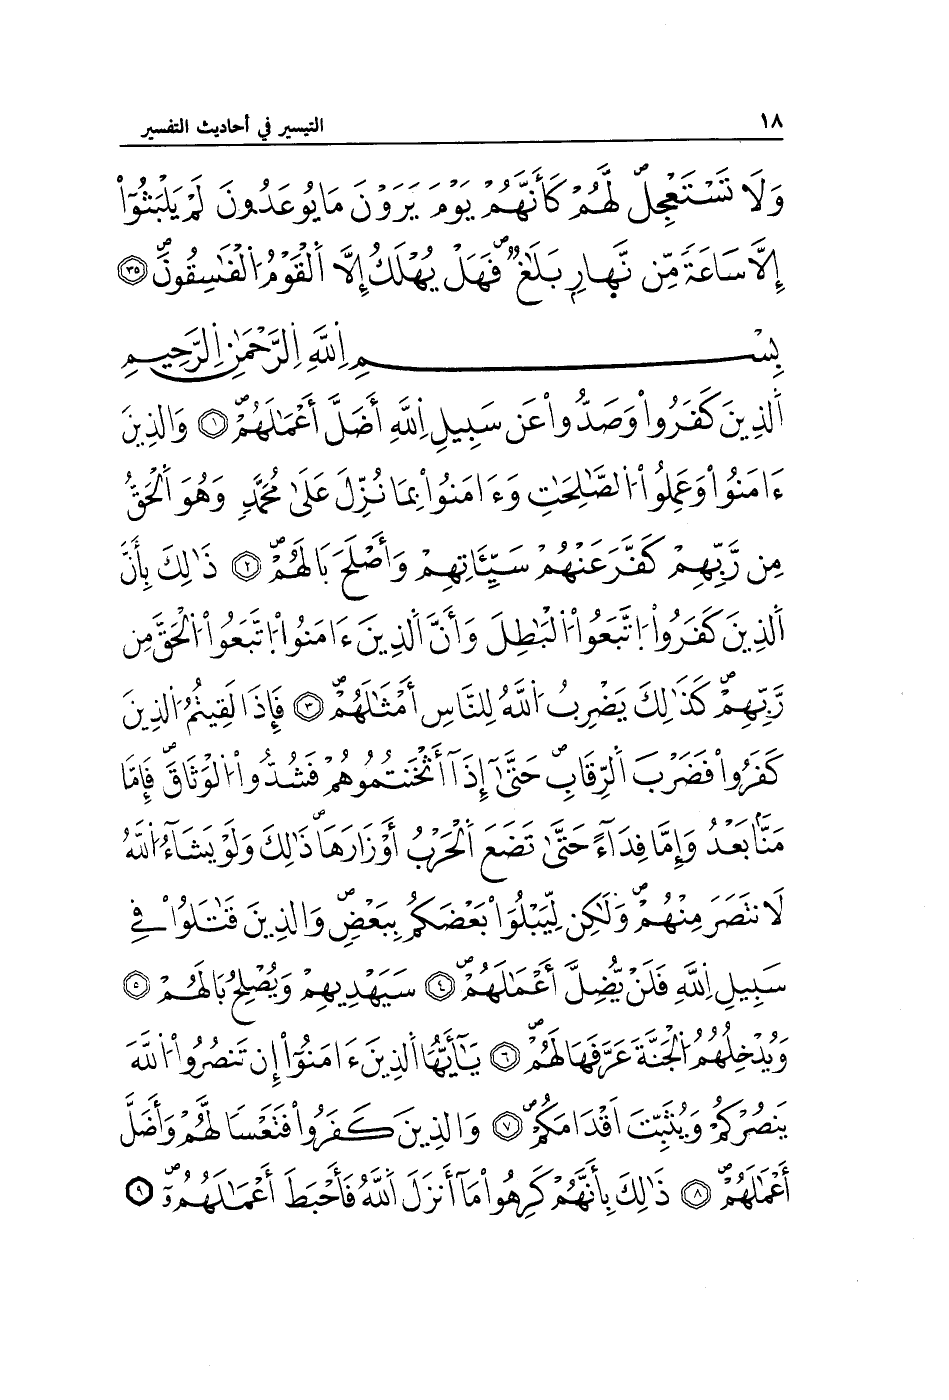 ١٨ التيسير في أحاديث التفسير
وَلَا تَسْتَعْجِل لَّهُمْ كَأَنَّهُمْ يَوْمَ يَرَوْنَ مَا يُوعَدُونَ لَمْ يَلْبَثُوٓاْ
إِلَّا سَاعَةً مِّن نَّهَارٍ بَلَٰغٌ فَهَلْ يُهْلَكُ إِلَّا اَلْقَوْمُ اُلْفَٰسِقُونَ ٣٥
بِسْمِ اِللَّهِ اِلرَّحْمَٰنِ اِلرَّحِيمِ
اَلذِينَ كَفَرُواْ وَصَدُّواْ عَن سَبِيلِ اِللَّهِ أَضَلَّ أَعْمَٰلَهُمْ ١ وَالذِينَ
ءَامَنُواْ وَعَمِلُواْ اُلصَّٰلِحَٰتِ وَءَامَنُواْ بِمَا نُزِّلَ عَلَىٰ مُحَمَّدٍ وَهُوَ اَلْحَقُّ
مِن رَّبِّهِمْ كَفَّرَ عَنْهُمْ سَيِّـَٔاتِهِمْ وَأَصْلَحَ بَالَهُمْ ٢ ذَٰلِكَ بِأَنَّ
اَلذِينَ كَفَرُواْ اُتَّبَعُواْ اُلْبَٰطِلَ وَأَنَّ اَلذِينَ ءَامَنُواْ اُتَّبَعُواْ اُلْحَقَّ مِن
رَّبِّهِمْ كَذَٰلِكَ يَضْرِبُ اُللَّهُ لِلنَّاسِ أَمْثَٰلَهُمْ ٣ فَإِذَا لَقِيتُمُ اُلذِينَ
كَفَرُواْ فَضَرْبَ اَلرِّقَابِ حَتَّىٰٓ إِذَآ أَثْخَنتُمُوهُمْ فَشُدُّواْ اُلْوَثَاقَ فَإِمَّا
مَنّاً بَعْدُ وَإِمَّا فِدَآءً حَتَّىٰ تَضَعَ اَلْحَرْبُ أَوْزَارَهَا ذَٰلِكَ وَلَوْ يَشَآءُ اُللَّهُ
لَانتَصَرَ مِنْهُمْ وَلَٰكِن لِّيَبْلُوَاْ بَعْضَكُم بِبَعْضٍ وَالذِينَ قَٰتَلُواْ فِي
سَبِيلِ اِللَّهِ فَلَنْ يُّضِلَّ أَعْمَٰلَهُمْ ٤ سَيَهْدِيهِمْ وَيُصْلِحُ بَالَهُمْ ٥
وَيُدْخِلُهُمُ اُلْجَنَّةَ عَرَّفَهَا لَهُمْ ٦ يَٰٓأَيُّهَا اَلذِينَ ءَامَنُوٓاْ إِن تَنصُرُواْ اُللَّهَ
يَنصُرْكُمْ وَيُثَبِّتَ اَقْدَامَكُمْ ٧ وَالذِينَ كَفَرُواْ فَتَعْساً لَّهُمْ وَأَضَلَّ
أَعْمَٰلَهُمْ ٨ ذَٰلِكَ بِأَنَّهُمْ كَرِهُواْ مَآ أَنزَلَ اَللَّهُ فَأَحْبَطَ أَعْمَٰلَهُمُۥٓ ٩